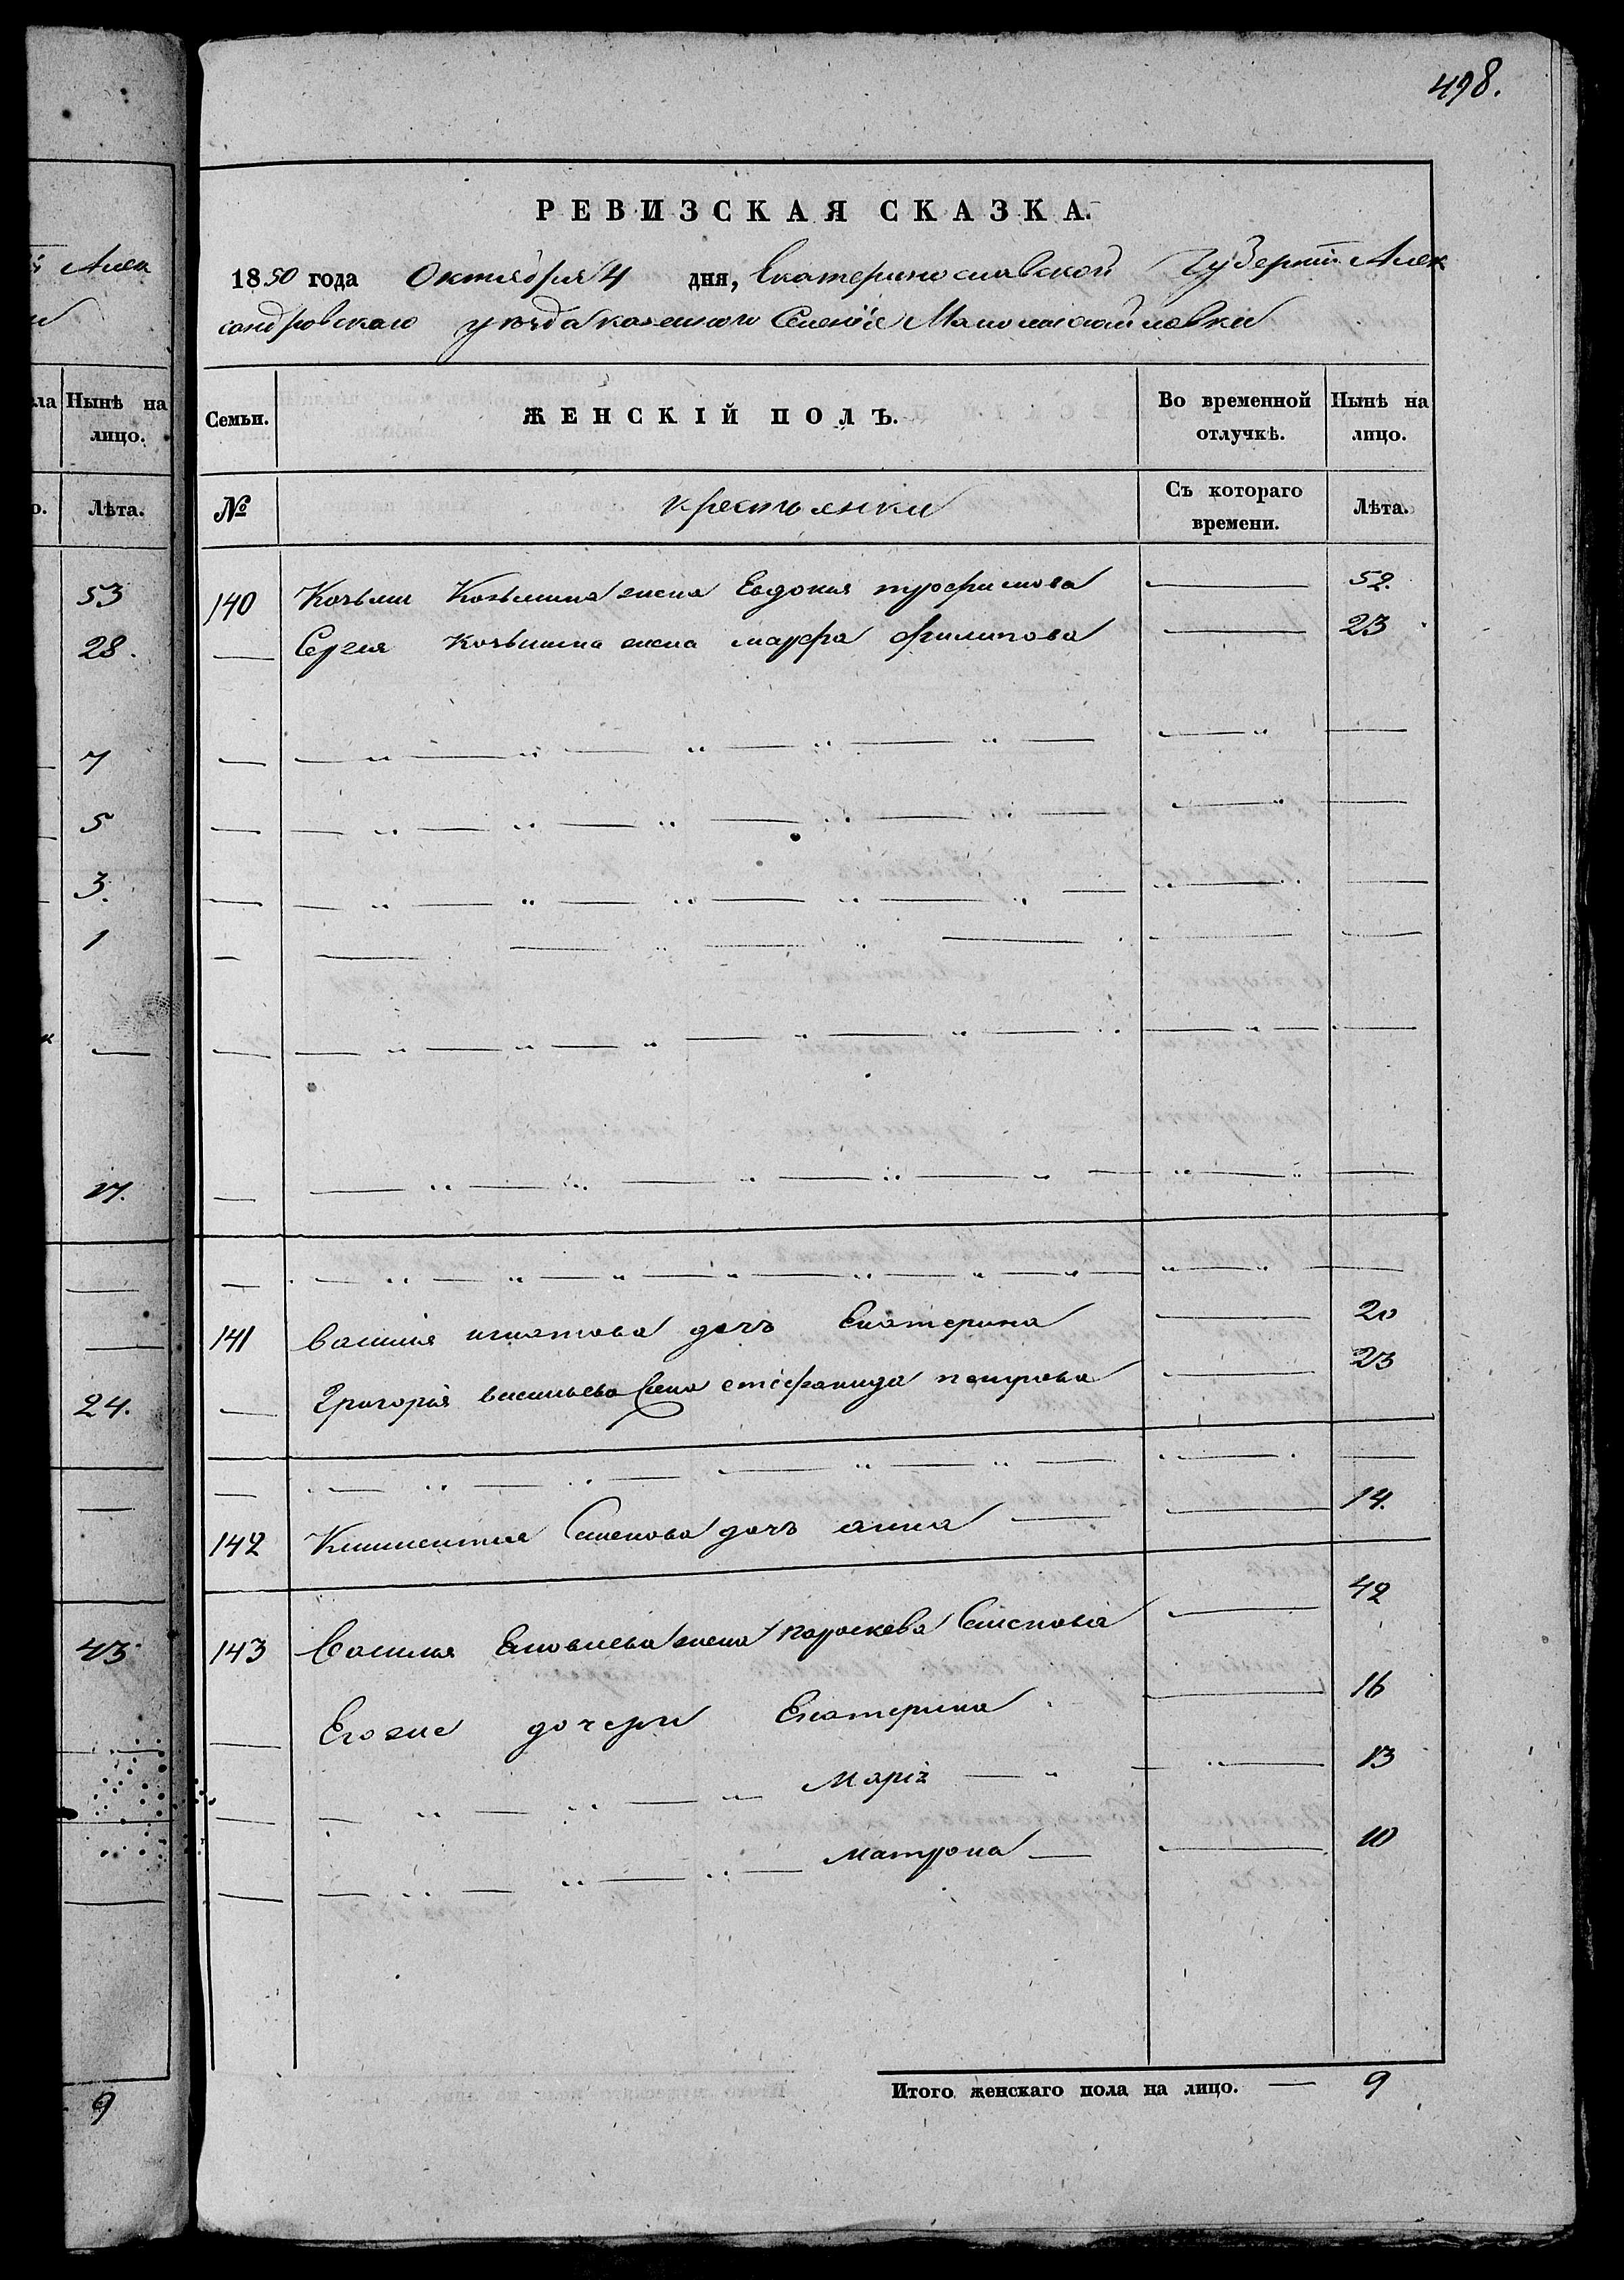 498.
РЕВИЗСКАЯ СКАЗКА.
1850 года Октября 4 дня, Екатеринославской Губерніи Алек
сандровскаго уѣзда казеннаго Селенія Маломихайловки
Семьи. ЖЕНСКІЙ ПОЛЪ. Во временной отлучкѣ. Нынѣ на лицо.
№ крестьянки Съ котораго времени. Лѣта.
140 Козьмы Козьмина жена Евдокия трофимова — 52.
— Сергея Козьмина жена мавра филипова — 23
141 василия игнатова дочь Екатерина — 20
— Григорія васильева жена стефанида петрова — 23
142 Климентия Семенова дочь анна — 14.
143 Василия Яковлева жена параскева Семенова — 42
— Егоже дочери Екатерина — 16
Марія — 13
Матрона — 10
Итого женскаго пола на лицо. — 9
Алек
ла Нынѣ на лицо.
о. Лѣта.
53
28.
7
5
3.
1
17.
24.
43
9